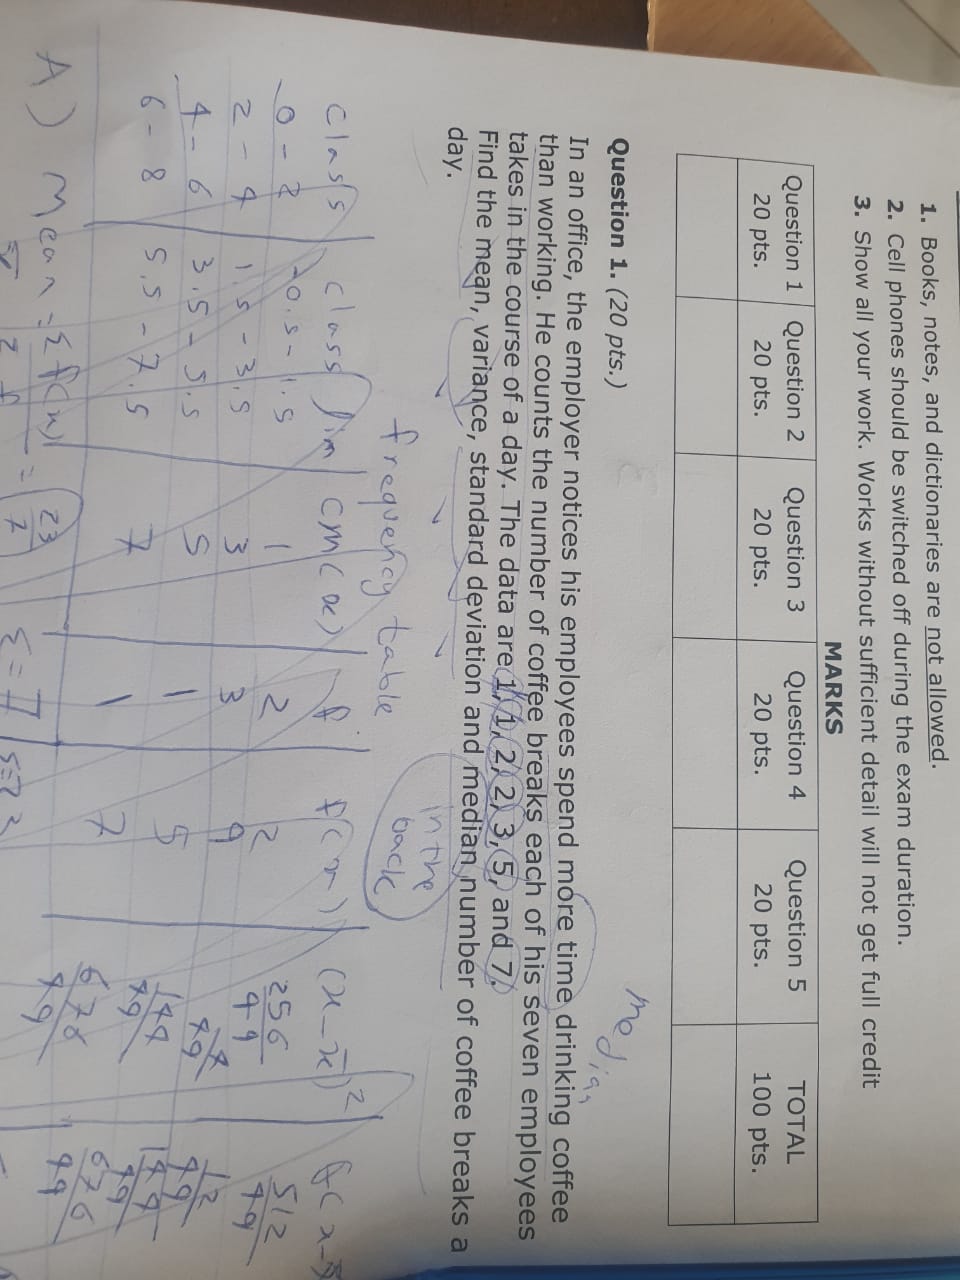 1. Books, notes, and dictionaries are not allowed.
2. Cell phones should be switched off during the exam duration.
3. Show all your work. Works without sufficient detail will not get full credit
MARKS
Question 1 Question 2 Question 3 Question 4 Question 5 TOTAL
20 pts. 20 pts. 20 pts. 20 pts. 20 pts. 100 pts.
Question 1. (20 pts.)
median
In an office, the employer notices his employees spend more time drinking coffee
than working. He counts the number of coffee breaks each of his seven employees
takes in the course of a day. The data are 1, 1, 2, 2, 3, 5, and 7.
Find the mean, variance, standard deviation and median number of coffee breaks a
day.
in the
back
frequency table
class class lim cm(x) f f(m) (x-x̄)²
0-2 -0.5-1.5 1 2 2 256/49 512/49
2-4 1.5-3.5 3 3 9 4/49 12/49
4-6 3.5-5.5 5 1 5 144/49 144/49
6-8 5.5-7.5 7 1 7 676/49 676/49
A) Mean = = 23/7 Σ=7